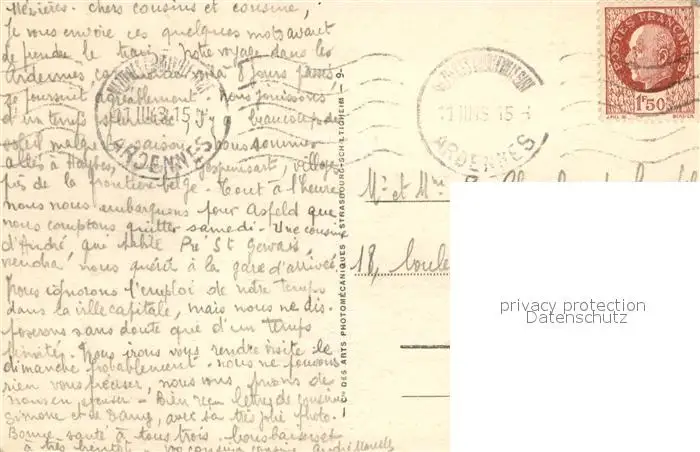 Mézières. Chers cousins et cousine,
Je vous envoie ces quelques mots avant
de prendre le train. Notre voyage dans les
Ardennes voilà 8 jours passés,
se poursuit agréablement. Nous jouissons
d'un temps splendide, il y a beaucoup de
soleil malgré la saison. Nous sommes
allés à Gespunsart, villages
près de la frontière belge. Tout à l'heure
nous nous embarquons pour Asfeld que
nous comptons quitter samedi. Une cousine
d'André, qui habite Pré St Gervais,
viendra nous quérir à la gare d'arrivée.
Nous ignorons l'emploi de notre temps
dans la ville capitale, mais nous ne dis-
poserons sans doute que d'un temps
limité. Nous irons vous rendre visite le
dimanche probablement. Nous ne pouvons
rien vous préciser, nous vous prions de
nous en excuser. Bien reçu lettre de cousine
Simone et de Dany, avec sa très jolie photo.
Bonne santé à tous trois. Bons baisers et
à très bientôt. Vos cousins André Marcelle
Cie DES ARTS PHOTOMÉCANIQUES - STRASBOURG-SCHILTIGHEIM - 9-
ARDENNES
ARDENNES
POSTES FRANÇAISES
1F50
Mr et Mme
18, boule
privacy protection
Datenschutz